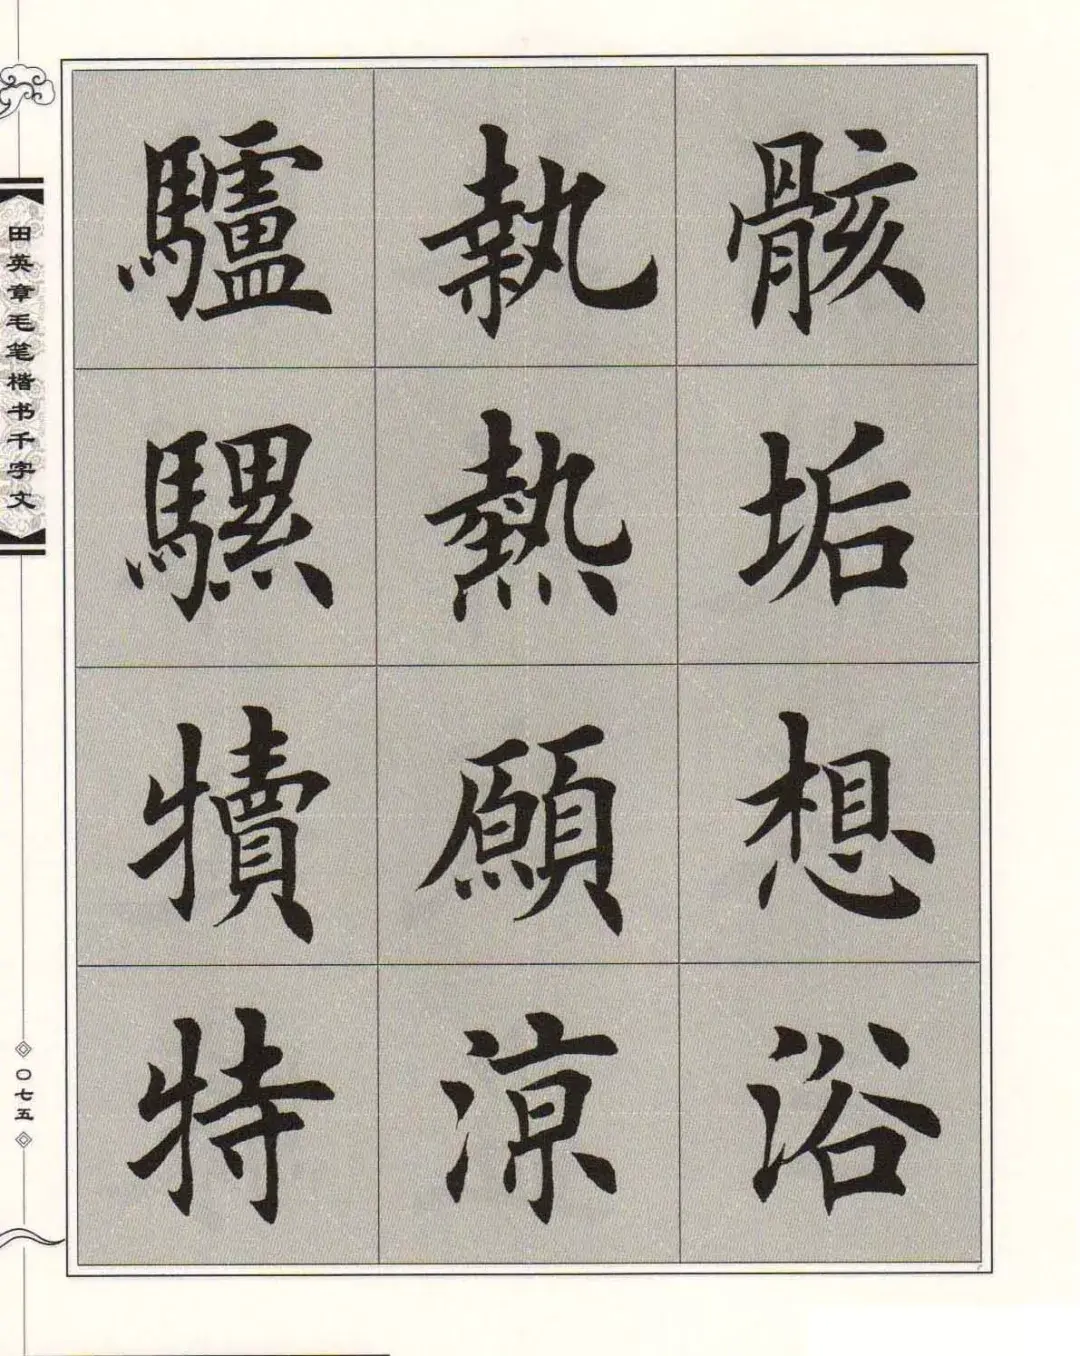 骸垢想浴
執熱願涼
驢騾犢特
田英章毛笔楷书千字文
〇七五